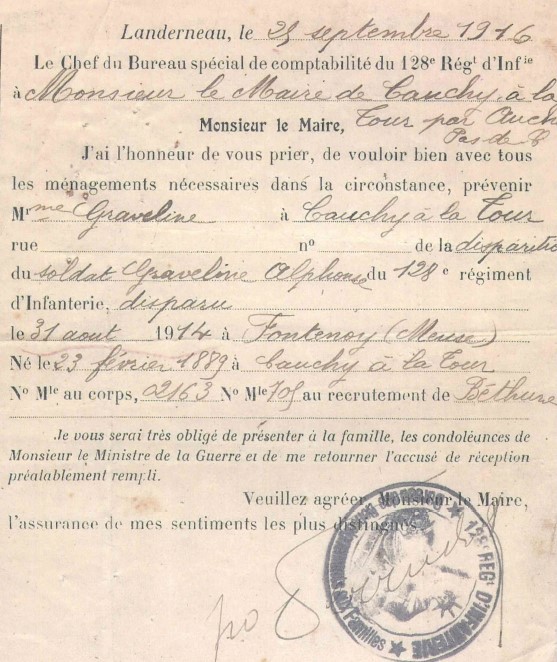 Landerneau, le 25 septembre 1916
Le Chef du Bureau spécial de comptabilité du 128e Régt d'Infie
à Monsieur le Maire de Cauchy à la
Monsieur le Maire, Tour par Auch
Pas de
J'ai l'honneur de vous prier, de vouloir bien avec tous
les ménagements nécessaires dans la circonstance, prévenir
Mrme Graveline à Cauchy à la Tour
rue no de la disparitio
du soldat Graveline Alphonse du 128e régiment
d'Infanterie, disparu
le 31 aout 1914 à Fontenoy (Meuse)
Né le 23 février 1889 à Cauchy à la Tour
No Mle au corps, 02163 No Mle 705 au recrutement de Béthune
Je vous serai très obligé de présenter à la famille, les condoléances de
Monsieur le Ministre de la Guerre et de me retourner l'accusé de réception
préalablement rempli.
Veuillez agréer, Monsieur le Maire,
l'assurance de mes sentiments les plus distingués.
po
128e REGT D'INFANTERIE
aux Familles